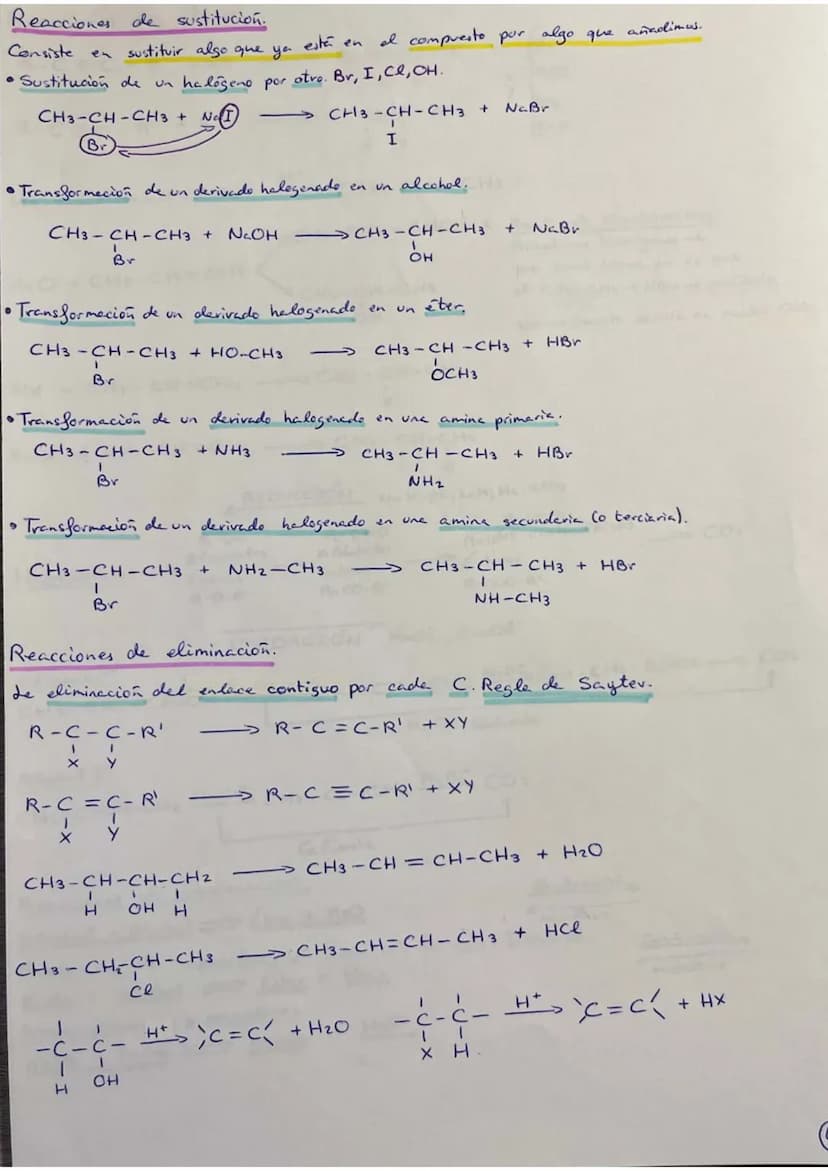 Reacciones de sustitución.
Consiste en sustituir algo que ya está en el compuesto por algo que añadimos.
• Sustitución de un halógeno por otro. Br, I, Cl, OH.
CH3-CH-CH3 + NaI ⟶ CH3-CH-CH3 + NaBr
Br I
• Transformación de un derivado halogenado en un alcohol.
CH3-CH-CH3 + NaOH ⟶ CH3-CH-CH3 + NaBr
Br OH
• Transformación de un derivado halogenado en un éter.
CH3-CH-CH3 + HO-CH3 ⟶ CH3-CH-CH3 + HBr
Br OCH3
• Transformación de un derivado halogenado en una amina primaria.
CH3-CH-CH3 + NH3 ⟶ CH3-CH-CH3 + HBr
Br NH2
• Transformación de un derivado halogenado en una amina secundaria (o terciaria).
CH3-CH-CH3 + NH2-CH3 ⟶ CH3-CH-CH3 + HBr
Br NH-CH3
Reacciones de eliminación.
La eliminación del enlace contiguo por cada C. Regla de Saytev.
R-C-C-R' ⟶ R-C=C-R' + XY
X Y
R-C=C-R' ⟶ R-C≡C-R' + XY
X Y
CH3-CH-CH-CH2 ⟶ CH3-CH=CH-CH3 + H2O
H OH H
CH3-CH2-CH-CH3 ⟶ CH3-CH=CH-CH3 + HCl
Cl
-C-C- H+⟶ C=C + H2O -C-C- H+⟶ C=C + HX
H OH X H